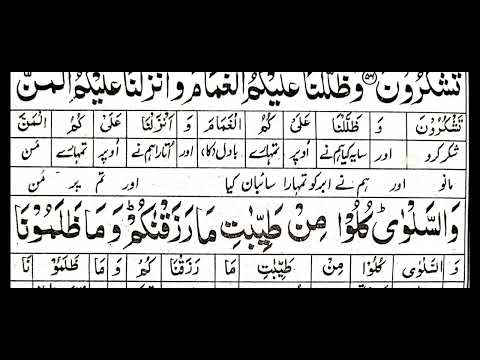 تَشْكُرُوْنَ ۝۵۶ وَظَلَّلْنَا عَلَيْكُمُ الْغَمَامَ وَاَنْزَلْنَا عَلَيْكُمُ الْمَنَّ
تَشْكُرُوْنَ وَ ظَلَّلْنَا عَلَىْ كُمُ الْغَمَامَ وَ اَنْزَلْنَا عَلَىْ كُمُ الْمَنَّ
شکر کرو اور سایہ کیا ہم نے اُوپر تمہارے بادل (کا) اور اُتارا ہم نے اُوپر تمہارے مَن
مانو اور ہم نے ابر کو تمہارا سائبان کیا اور تم پر مَن
وَالسَّلْوٰىؕ كُلُوْا مِنْ طَيِّبٰتِ مَا رَزَقْنٰكُمْؕ وَمَا ظَلَمُوْنَا
وَ السَّلْوٰى كُلُوْا مِنْ طَيِّبٰتِ مَا رَزَقْنَا كُمْ وَ مَا ظَلَمُوْ نَا